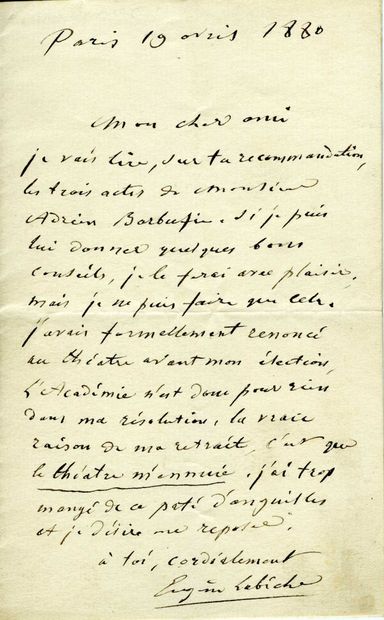 Paris 19 avril 1880
Mon cher ami
je vais lire, sur ta recommandation,
les trois actes de Monsieur
Adrien si je puis
lui donner quelques bons
conseils, je le ferai avec plaisir,
mais je ne puis faire que cela.
j'avais formellement renoncé
au théatre avant mon élection,
L'Académie n'est donc pour rien
dans ma résolution, la vraie
raison de ma retrait, c'est que
le théatre m'ennuie. j'ai trop
mangé de ce paté d'anguilles
et je désire me reposer.
à toi, cordialement
Eugène Labiche